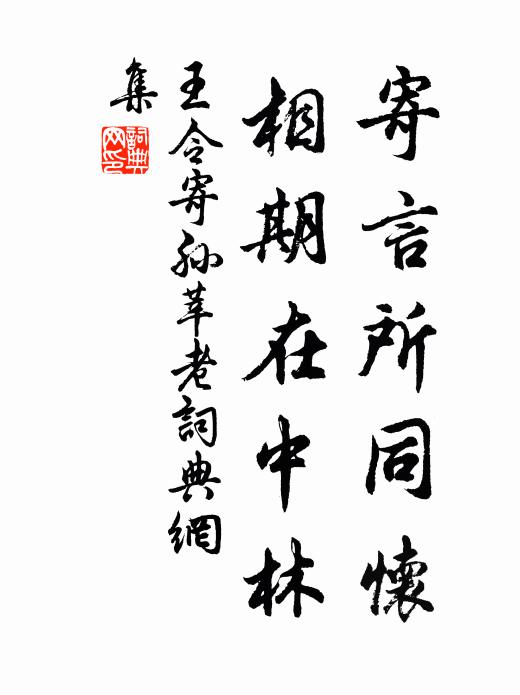 寄言所同懷
相期在中林
王令寄孫莘老詞典網
集
詞典网印